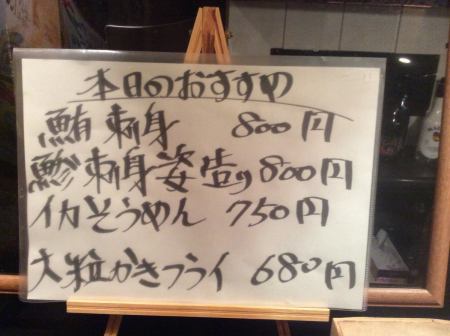 本日のおすすめ
鮪刺身 800円
鯵刺身姿造り800円
イカそうめん 750円
大粒かきフライ 680円